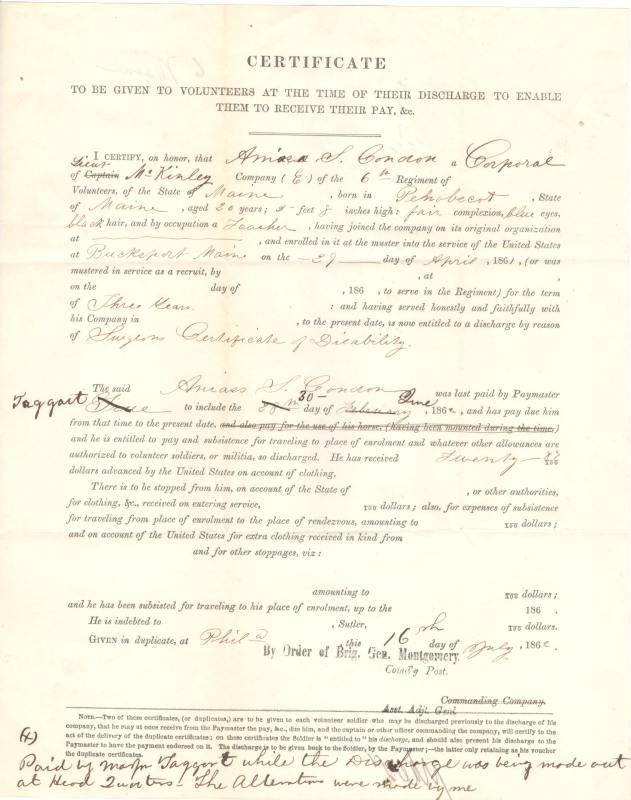 CERTIFICATE
TO BE GIVEN TO VOLUNTEERS AT THE TIME OF THEIR DISCHARGE TO ENABLE
THEM TO RECEIVE THEIR PAY, &c.
I CERTIFY, on honor, that Amiasa S. Condon a Corporal
of Lieut Captain McKinley Company (E) of the 6th Regiment of
Volunteers, of the State of Maine, born in Penobscot, State
of Maine, aged 20 years; 5 feet 8 inches high: fair complexion, blue eyes,
black hair, and by occupation a Teacher, having joined the company on its original organization
at , and enrolled in it at the muster into the service of the United States
at Bucksport Maine on the 27 day of April, 1861, (or was
mustered in service as a recruit, by , at ,
on the day of , 186 , to serve in the Regiment) for the term
of Three Years : and having served honestly and faithfully with
his Company in , to the present date, is now entitled to a discharge by reason
of Surgeons Certificate of Disability.
The said Amiasa S. Condon was last paid by Paymaster
Taggart to include the 30 day of February June, 1862, and has pay due him
from that time to the present date, and also pay for the use of his horse, (having been mounted during the time,)
and he is entitled to pay and subsistence for traveling to place of enrolment and whatever other allowances are
authorized to volunteer soldiers, or militia, so discharged. He has received Twenty /100
dollars advanced by the United States on account of clothing.
There is to be stopped from him, on account of the State of , or other authorities,
for clothing, &c., received on entering service, /100 dollars; also, for expenses of subsistence
for traveling from place of enrolment to the place of rendezvous, amounting to /100 dollars;
and on account of the United States for extra clothing received in kind from
and for other stoppages, viz:
amounting to /100 dollars;
and he has been subsisted for traveling to his place of enrolment, up to the 186 .
He is indebted to , Sutler, /100 dollars.
GIVEN in duplicate, at Phila, this 16th day of July, 1862.
By Order of Brig. Gen. Montgomery.
Comd'g Post.
Commanding Company.
Asst. Adjt. Genl
NOTE.—Two of these certificates, (or duplicates,) are to be given to each volunteer soldier who may be discharged previously to the discharge of his
company, that he may at once receive from the Paymaster the pay, &c., due him, and the captain or other officer commanding the company, will certify to the
act of the delivery of the duplicate certificates; on these certificates the Soldier is "entitled to" his discharge, and should also present his discharge to the
Paymaster to have the payment endorsed on it. The discharge is to be given back to the Soldier, by the Paymaster;—the latter only retaining as his voucher
the duplicate certificates.
Paid by Major Taggart while the Discharge was being made out
at Head Quarters—The Alterations were made by me